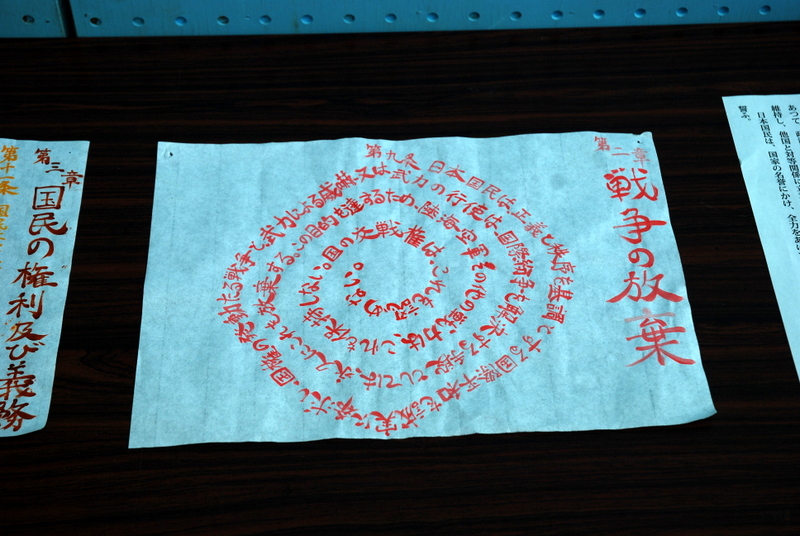 あつて、
維持し、他国と対等関係に
日本国民は、国家の名誉にかけ、全力をあげ
誓ふ。
第二章
戦争の放棄
第九条 日本国民は、正義と秩序を基調とする国際平和を誠実に希求し、国権の発動たる戦争と、武力による威嚇又は武力の行使は、国際紛争を解決する手段としては、永久にこれを放棄する。この目的を達するため、陸海空軍その他の戦力は、これを保持しない。国の交戦権は、これを認めない。
第三章
国民の権利及び義務
第十一条 国民